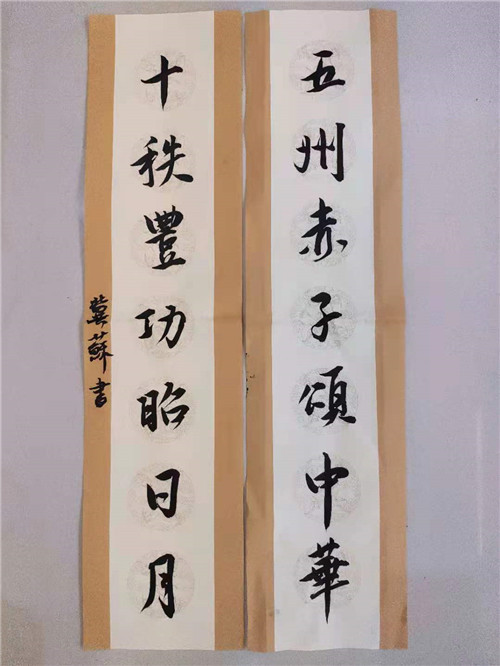 五州赤子頌中華
十秩豐功昭日月
冀蘇書